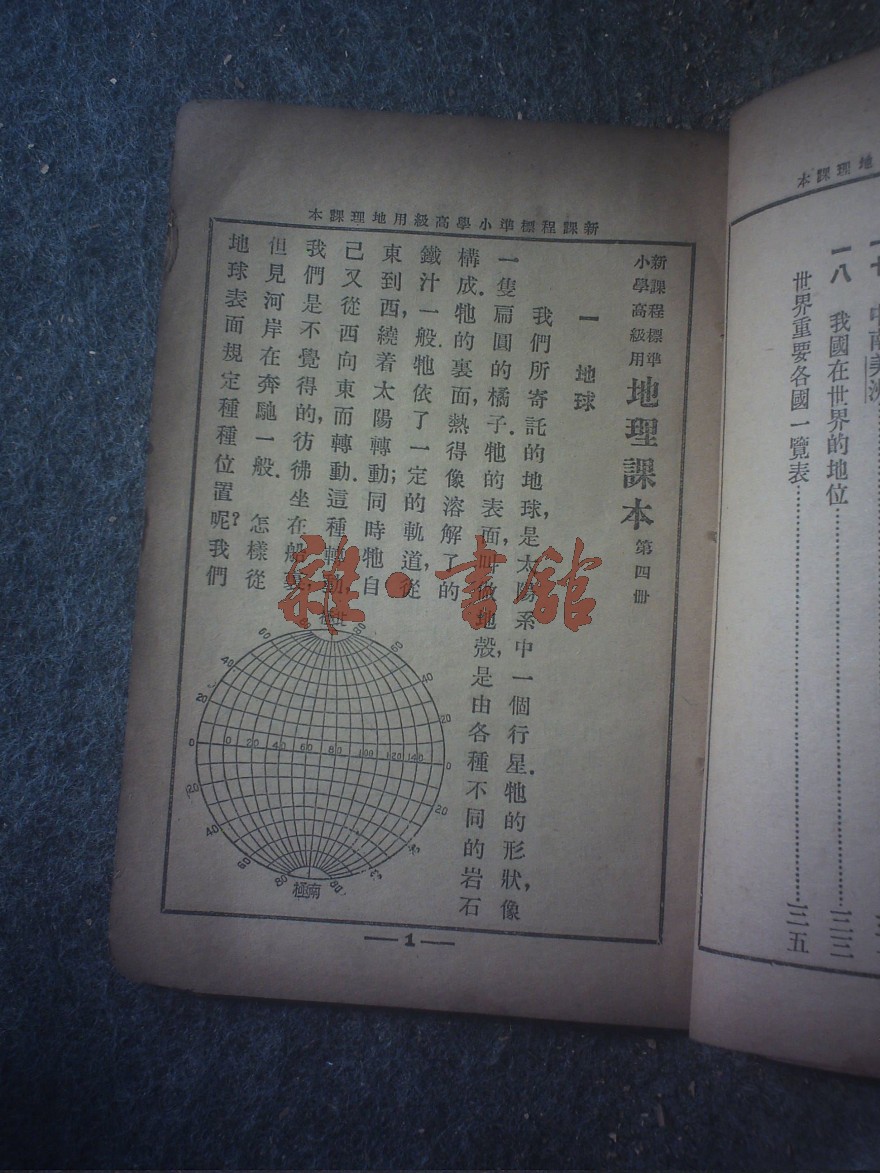 本課理地用級高學小準標程課新
新課程標準
小學高級用
地理課本 第四册
一 地球
我們所寄託的地球,是太陽系中一個行星.牠的形狀,像
一隻扁圓的橘子.牠的表面,叫做地殼,是由各種不同的岩石
構成.牠的裏面,熱得像溶解了的
鐵汁一般.牠依了一定的軌道,從
東到西,繞着太陽轉動;同時牠自
己又從西向東而轉動.這種轉動,
我們是不覺得的,彷彿坐在船裏,
但見河岸在奔馳一般. 怎樣從
地球表面規定種種位置呢?我們
極南
0 20 40 60 80 100 120 140
80 60 40 20 0 20 40 60 80
80 60 40 20 0 20 40 80
1
本課理地
中南美洲
一八 我國在世界的地位 一三三
世界重要各國一覽表 一三五
雜·書館